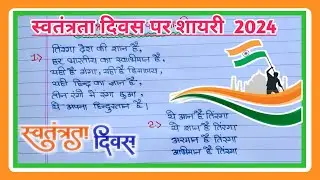 स्वतंत्रता दिवस पर शायरी 2024
1) तिरंगा देश की शान है,
हर भारतीय का स्वाभिमान है,
यही है गंगा, यही है हिमालय,
यही हिन्द की जान है,
तीन रंगों में रंगा हुआ
ये अपना हिन्दुस्तान है।
2) ये आन है तिरंगा
ये शान है तिरंगा
अरमान है तिरंगा
अभिमान है तिरंगा
स्वतंत्रता दिवस